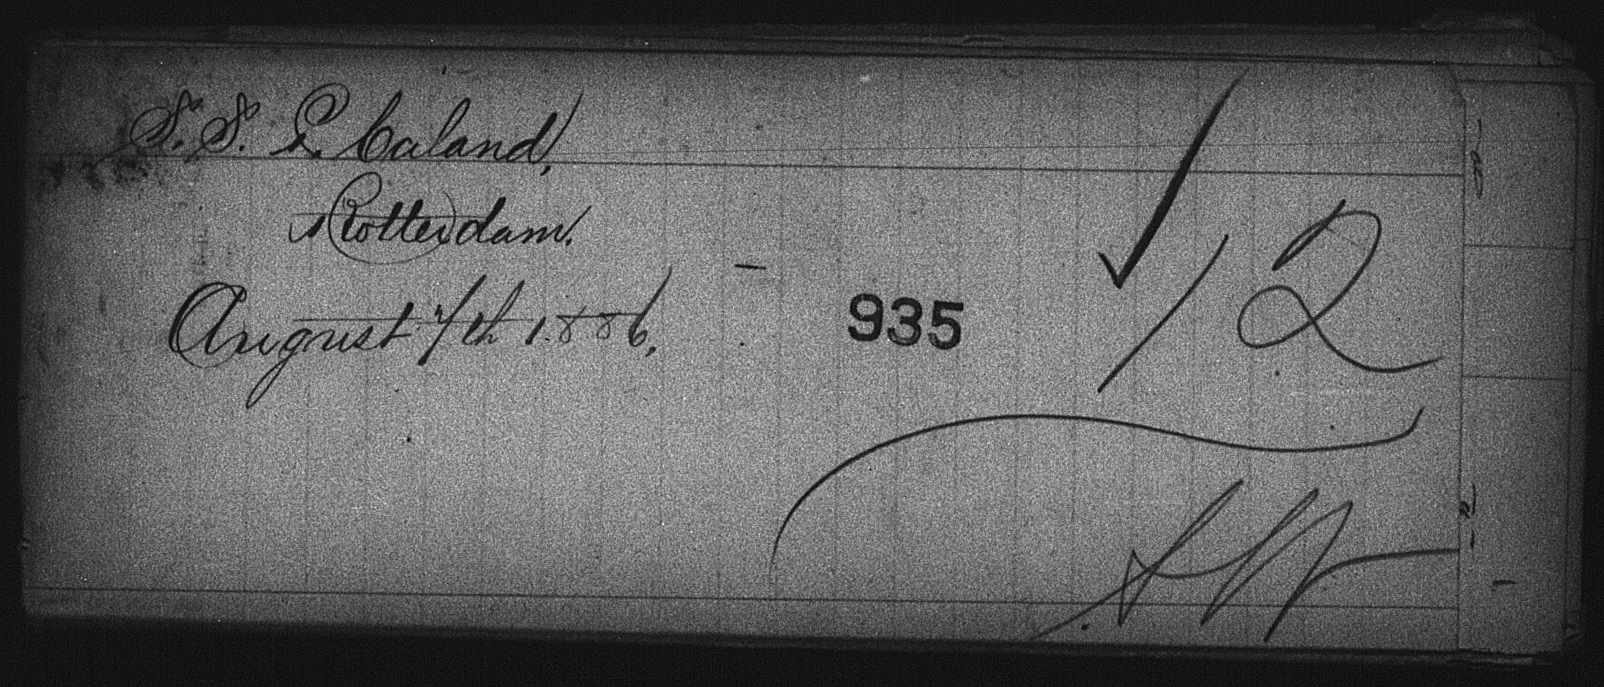 S. S. P. Caland,
Rotterdam.
August 7th 1886.
935
12